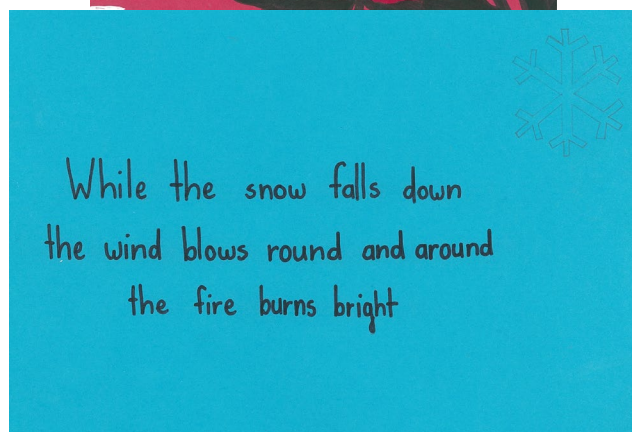 While the snow falls down
the wind blows round and around
the fire burns bright